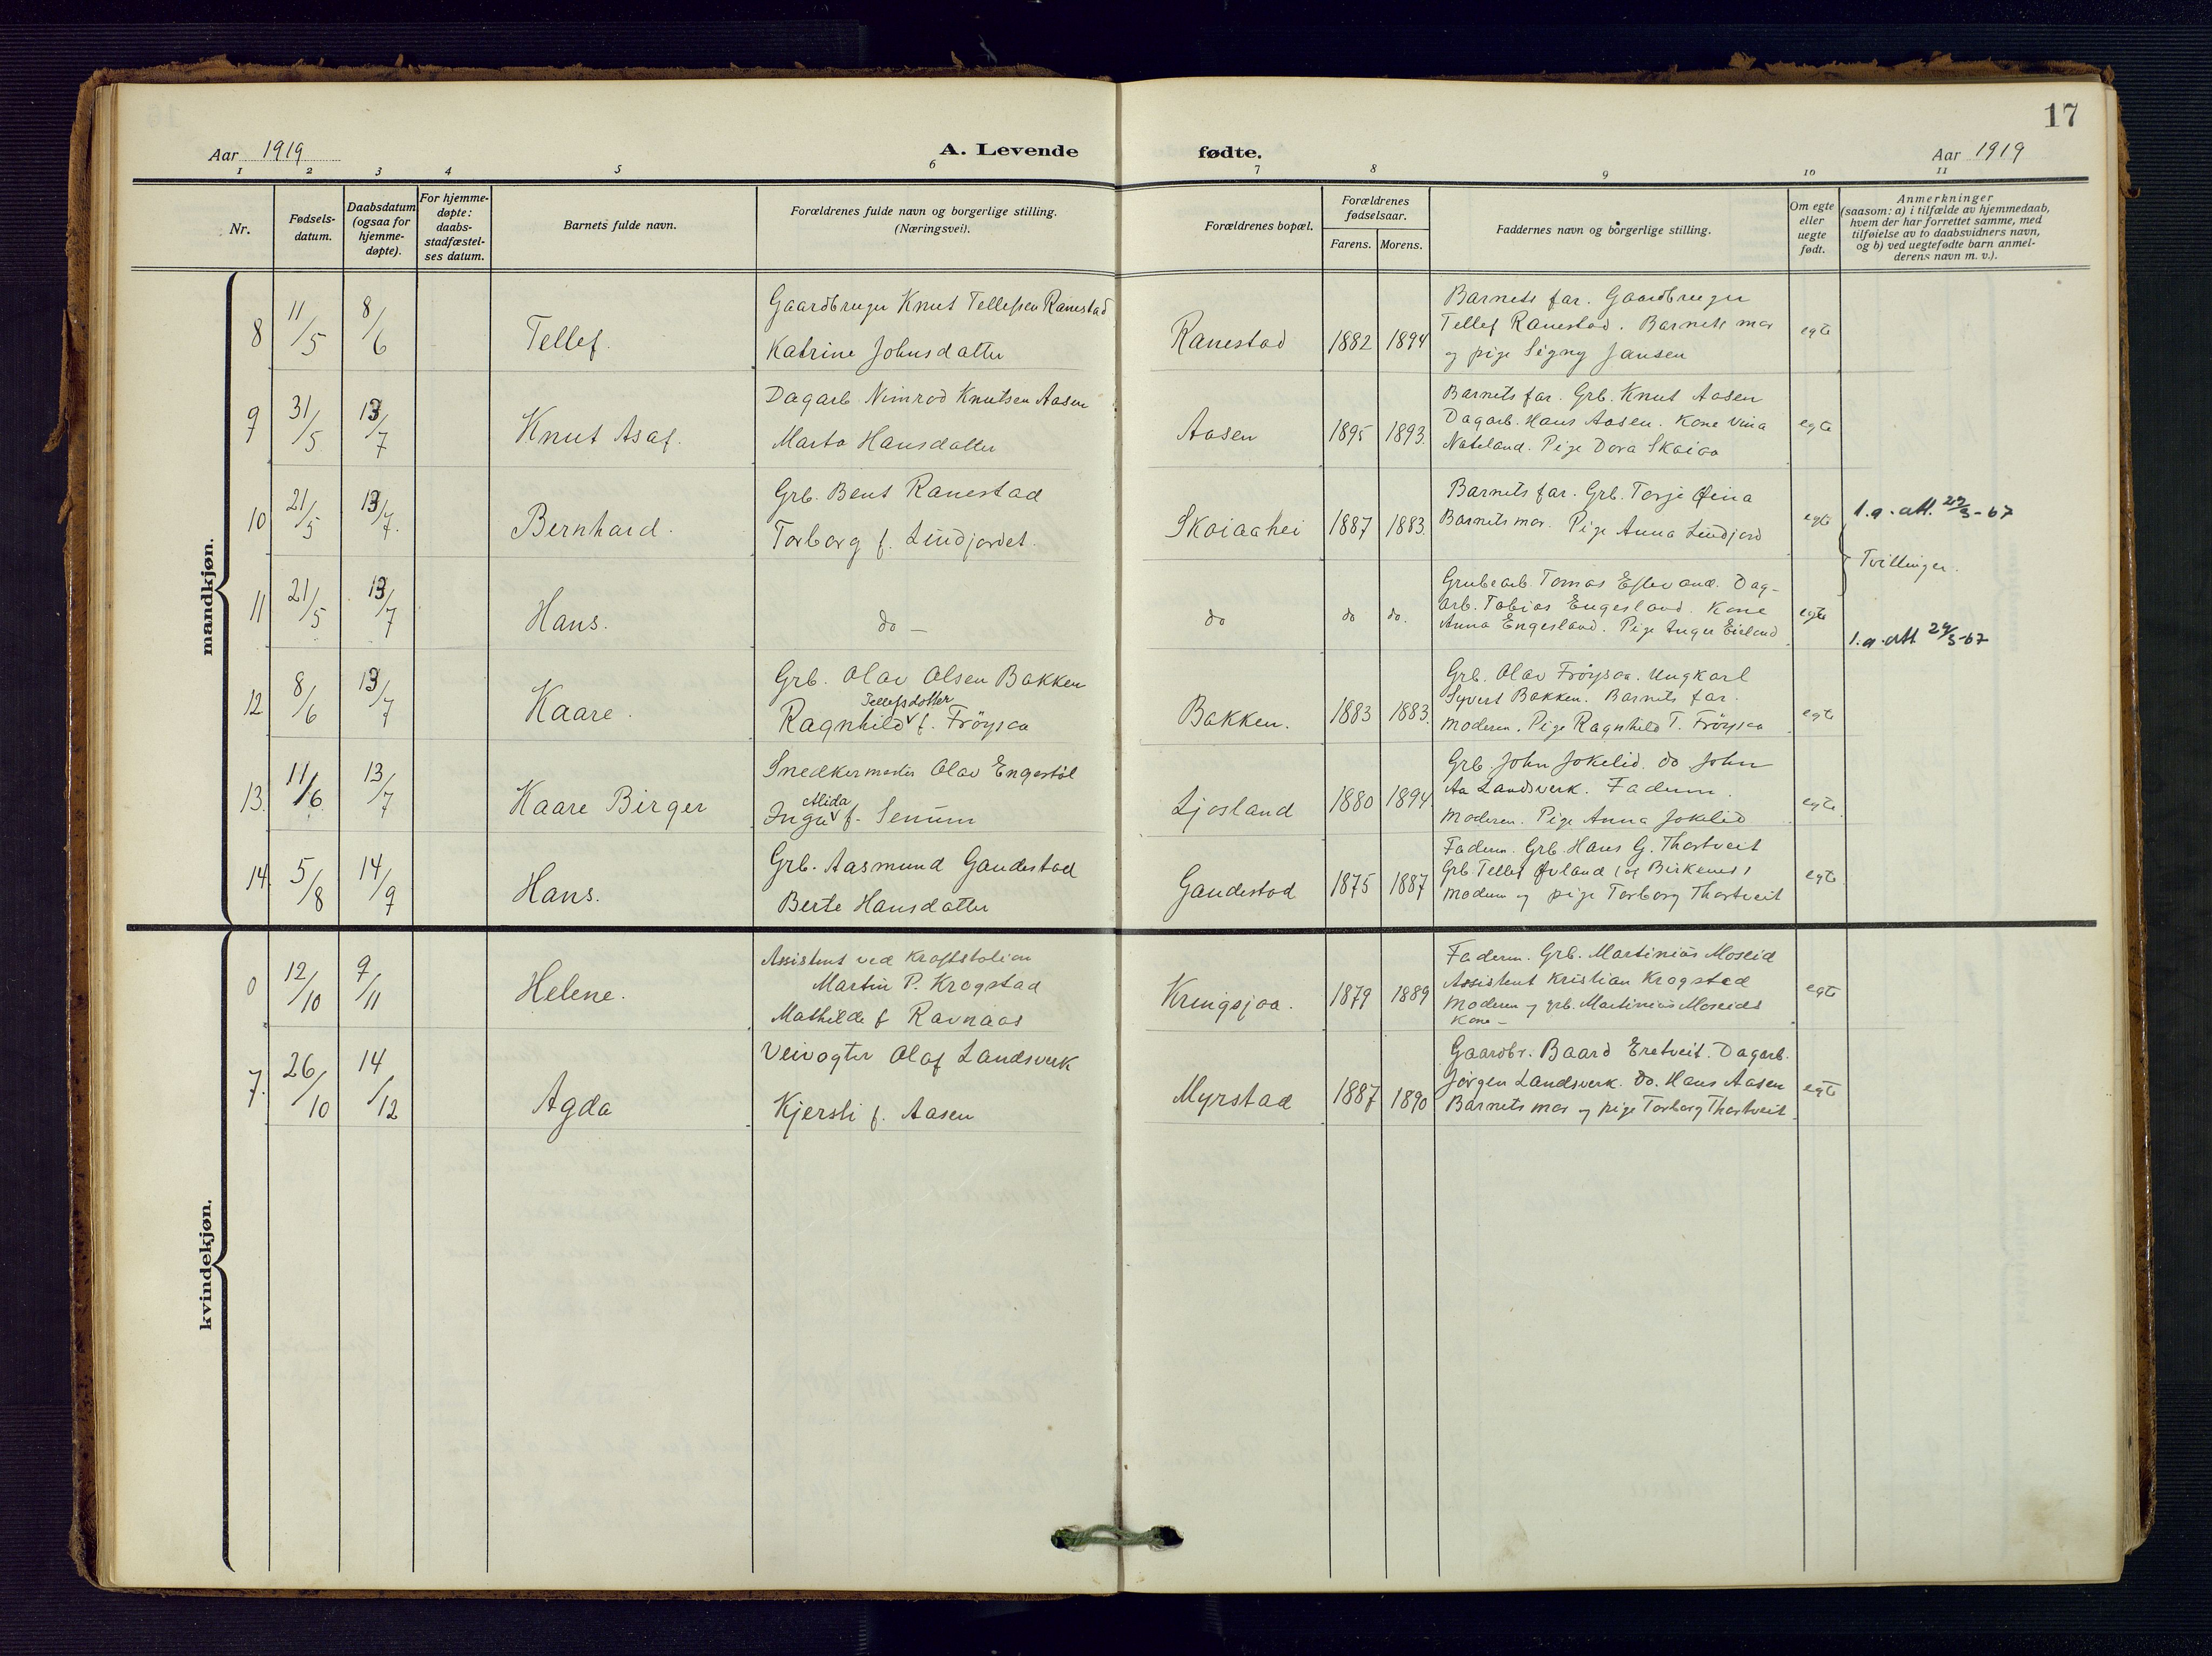 17
Aar 1919
A. Levende fødte.
Aar 1919
1 2 3 4 5 6 7 8 9 10 11
Nr.
Fødsels-
datum.
Daabsdatum
(ogsaa for
hjemme-
døpte).
For hjemme-
døpte:
daabs-
stadfæstel-
ses datum.
Barnets fulde navn.
Forældrenes fulde navn og borgerlige stilling.
(Næringsvei).
Forældrenes bopæl.
Forældrenes
fødselsaar.
Farens. Morens.
Faddernes navn og borgerlige stilling.
Om egte
eller
uegte
født.
Anmerkninger
(saasom: a) i tilfælde av hjemmedaab,
hvem der har forrettet samme, med
tilføielse av to daabsvidners navn,
og b) ved uegtefødte barn anmel-
derens navn m. v.).
mandkjøn.
8 11/5 8/6
Tellef.
Gaardbruger Knut Tellefsen Ranestad
Katrine Johnsdatter
Ranestad 1882 1894
Barnets far. Gaardbruger
Tellef Ranestad. Barnets mor
og pige Signy Jansen
egte
9 31/5 13/7
Knut Asaf.
Dagarb. Nimrod Knutsen Aasen
Marta Hansdatter
Aasen 1895 1893.
Barnets far. Grb. Knut Aasen
Dagarb. Hans Aasen. Kone Vina
Nateland. Pige Dora Skaiaa
egte
10 21/5 13/7.
Bernhard.
Grb. Bent Ranestad
Torborg f. Lindjordet.
Skaiaahei 1887 1883.
Barnets far. Grb. Torje Øina
Barnets mor. Pige Anna Lindjord
egte
Tvillinger.
11 21/5 13/7
Hans.
do –
do do do.
Grubearb. Tomas Eftevand. Dag-
arb. Tobias Engesland. Kone
Anna Engesland. Pige Inger Eieland
egte
12 8/6 13/7
Kaare.
Grb. Olav Olsen Bakken
Tellefsdotter
Ragnhild f. Fröysaa
Bakken. 1883 1883.
Grb. Olav Fröysaa. Ungkarl
Syvert Bakken. Barnets far.
Moderen. Pige Ragnhild T. Fröysaa
egte
13. 11/6 13/7
Kaare Birger
Snedkermester Olav Engestöl
Alida
Inga f. Senum
Ljosland 1880 1894.
Grb. John Jokelid. do John
Aa Landsverk. Faderen.
Moderen. Pige Anna Jokelid
egte
14. 5/8 14/9
Hans.
Grb. Aasmund Gaudestad
Berte Hansdatter
Gaudestad 1875 1887
Faderen. Grb. Hans G. Thortveit
Grb. Tellef Øvland (af Birkenes)
Moderen og pige Torborg Thortveit
egte
kvindekjøn.
12/10 9/11
Helene.
Assistent ved Kraftstation
Martin P. Krogstad
Mathilde f Ravnaas
Kringsjaa. 1879 1889
Faderen. Grb. Martinius Moseid
Assistent Kristian Krogstad
Moderen og grb. Martinius Moseids
Kone –
egte
7. 26/10 14/12
Agda
Veivogter Olaf Landsverk
Kjersti f. Aasen
Myrstad 1887 1890
Gaardbr. Baard Eretveit. Dagarb.
Jörgen Landsverk. Do. Hans Aasen
Barnets mor og pige Torborg Thortveit.
egte